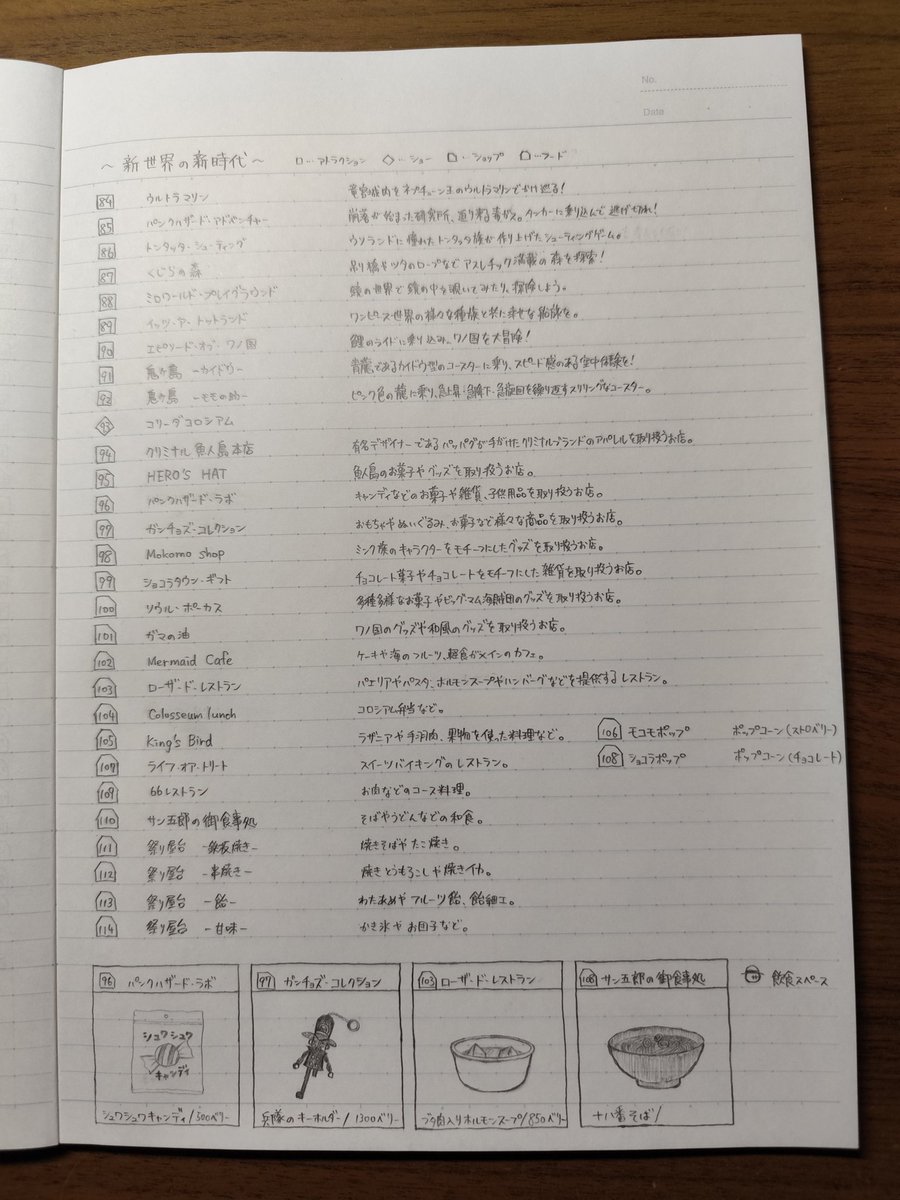 No.
Data
～新世界の新時代～ □…アトラクション ◇…ショー □…ショップ □…フード
84 ウルトラマリン 竜宮城内をネプチューン王のウルトラマリンでかけ巡る!
85 パンクハザード・アドベンチャー 崩落が始まった研究所、迫り来る毒ガス。タンカーに乗り込んで逃げ切れ!
86 トンタッタ・シューティング ウソランドに憧れたトンタッタ族が作り上げたシューティングゲーム。
87 くじらの森 吊り橋やツタのロープなどアスレチック満載の森を探索!
88 ミロワールド・プレイグラウンド 鏡の世界で鏡の中を覗いてみたり、探険しよう。
89 イッツ・ア・トットランド ワンピース世界の様々な種族と共に幸せな船旅を。
90 エピソード・オブ・ワノ国 鯉のライドに乗り込み、ワノ国を大冒険!
91 鬼ヶ島 －カイドウ－ 青龍であるカイドウ型のコースターに乗り、スピード感のある空中体験を!
92 鬼ヶ島 －モモの助－ ピンク色の龍に乗り、急上昇・急降下・急旋回を繰り返すスリリングなコースター。
93 コリーダコロシアム
94 クリミナル魚人島本店 有名デザイナーであるパッパグが手がけたクリミナルブランドのアパレルを取り扱うお店。
95 HERO'S HAT 魚人島のお菓子やグッズを取り扱うお店。
96 パンクハザード・ラボ キャンディなどのお菓子や雑貨、子供用品を取り扱うお店。
97 ガンチョズ・コレクション おもちゃやぬいぐるみ、お菓子など様々な商品を取り扱うお店。
98 Mokomo shop ミンク族のキャラクターをモチーフにしたグッズを取り扱うお店。
99 ショコラタウン・ギフト チョコレート菓子やチョコレートをモチーフにした雑貨を取り扱うお店。
100 ソウル・ポーカス 多種多様なお菓子やビッグ・マム海賊団のグッズを取り扱うお店。
101 ガマの油 ワノ国のグッズや和風のグッズを取り扱うお店。
102 Mermaid Cafe ケーキや海のフルーツ、軽食がメインのカフェ。
103 ローザ・ド・レストラン パエリアやパスタ、ホルモンスープやハンバーグなどを提供するレストラン。
104 Colosseum lunch コロシアム弁当など。
105 King's Bird ラザニアや手羽肉、果物を使った料理など。 106 モコモポップ ポップコーン(ストロベリー)
107 ライフ・オア・トリート スイーツバイキングのレストラン。 108 ショコラポップ ポップコーン(チョコレート)
109 66レストラン お肉などのコース料理。
110 サン五郎の御食事処 そばやうどんなどの和食。
111 祭り屋台 －鉄板焼き－ 焼きそばやたこ焼き。
112 祭り屋台 －串焼き－ 焼きとうもろこしや焼きイカ。
113 祭り屋台 －飴－ わたあめやフルーツ飴、飴細工。
114 祭り屋台 －甘味－ かき氷やお団子など。
96 パンクハザード・ラボ 97 ガンチョズ・コレクション 103 ローザ・ド・レストラン 108 サン五郎の御食事処 飲食スペース
シュワシュワ
キャンディ
シュワシュワキャンディ/300ベリー 兵隊のキーホルダー/1300ベリー ブタ肉入りホルモンスープ/850ベリー 十八番そば/